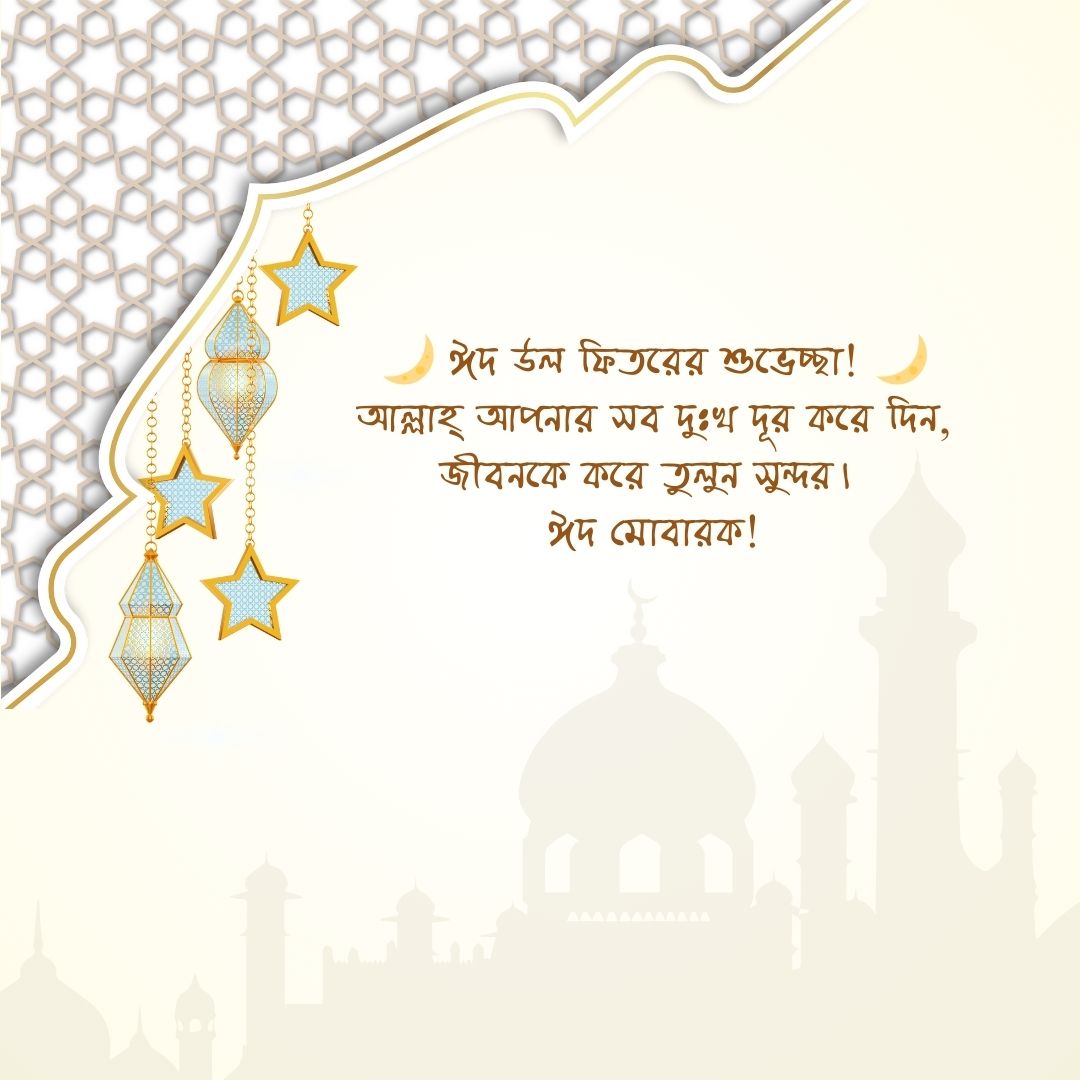 ঈদ উল ফিতরের শুভেচ্ছা!
আল্লাহ্ আপনার সব দুঃখ দূর করে দিন,
জীবনকে করে তুলুন সুন্দর।
ঈদ মোবারক!